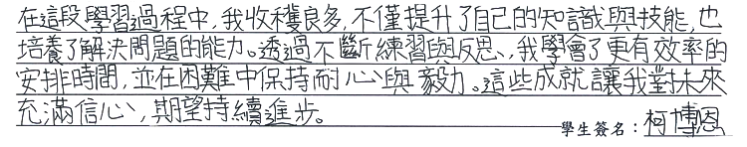 在這段學習過程中,我收穫良多,不僅提升了自己的知識與技能,也
培養了解決問題的能力。透過不斷練習與反思,我學會了更有效率的
安排時間,並在困難中保持耐心與毅力。這些成就讓我對未來
充滿信心,期望持續進步。
學生簽名:柯博恩